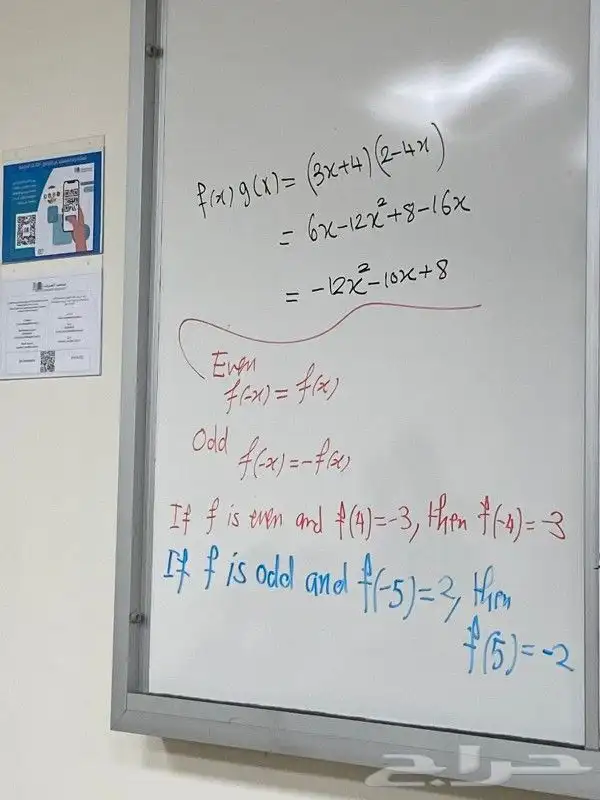 f(x) g(x) = (3x+4)(2-4x)
= 6x-12x²+8-16x
= -12x²-10x+8
Even
f(-x) = f(x)
Odd
f(-x) = -f(x)
If f is even and f(4)=-3, then f(-4)=-3
If f is odd and f(-5)=2, then
f(5)=-2
حراج